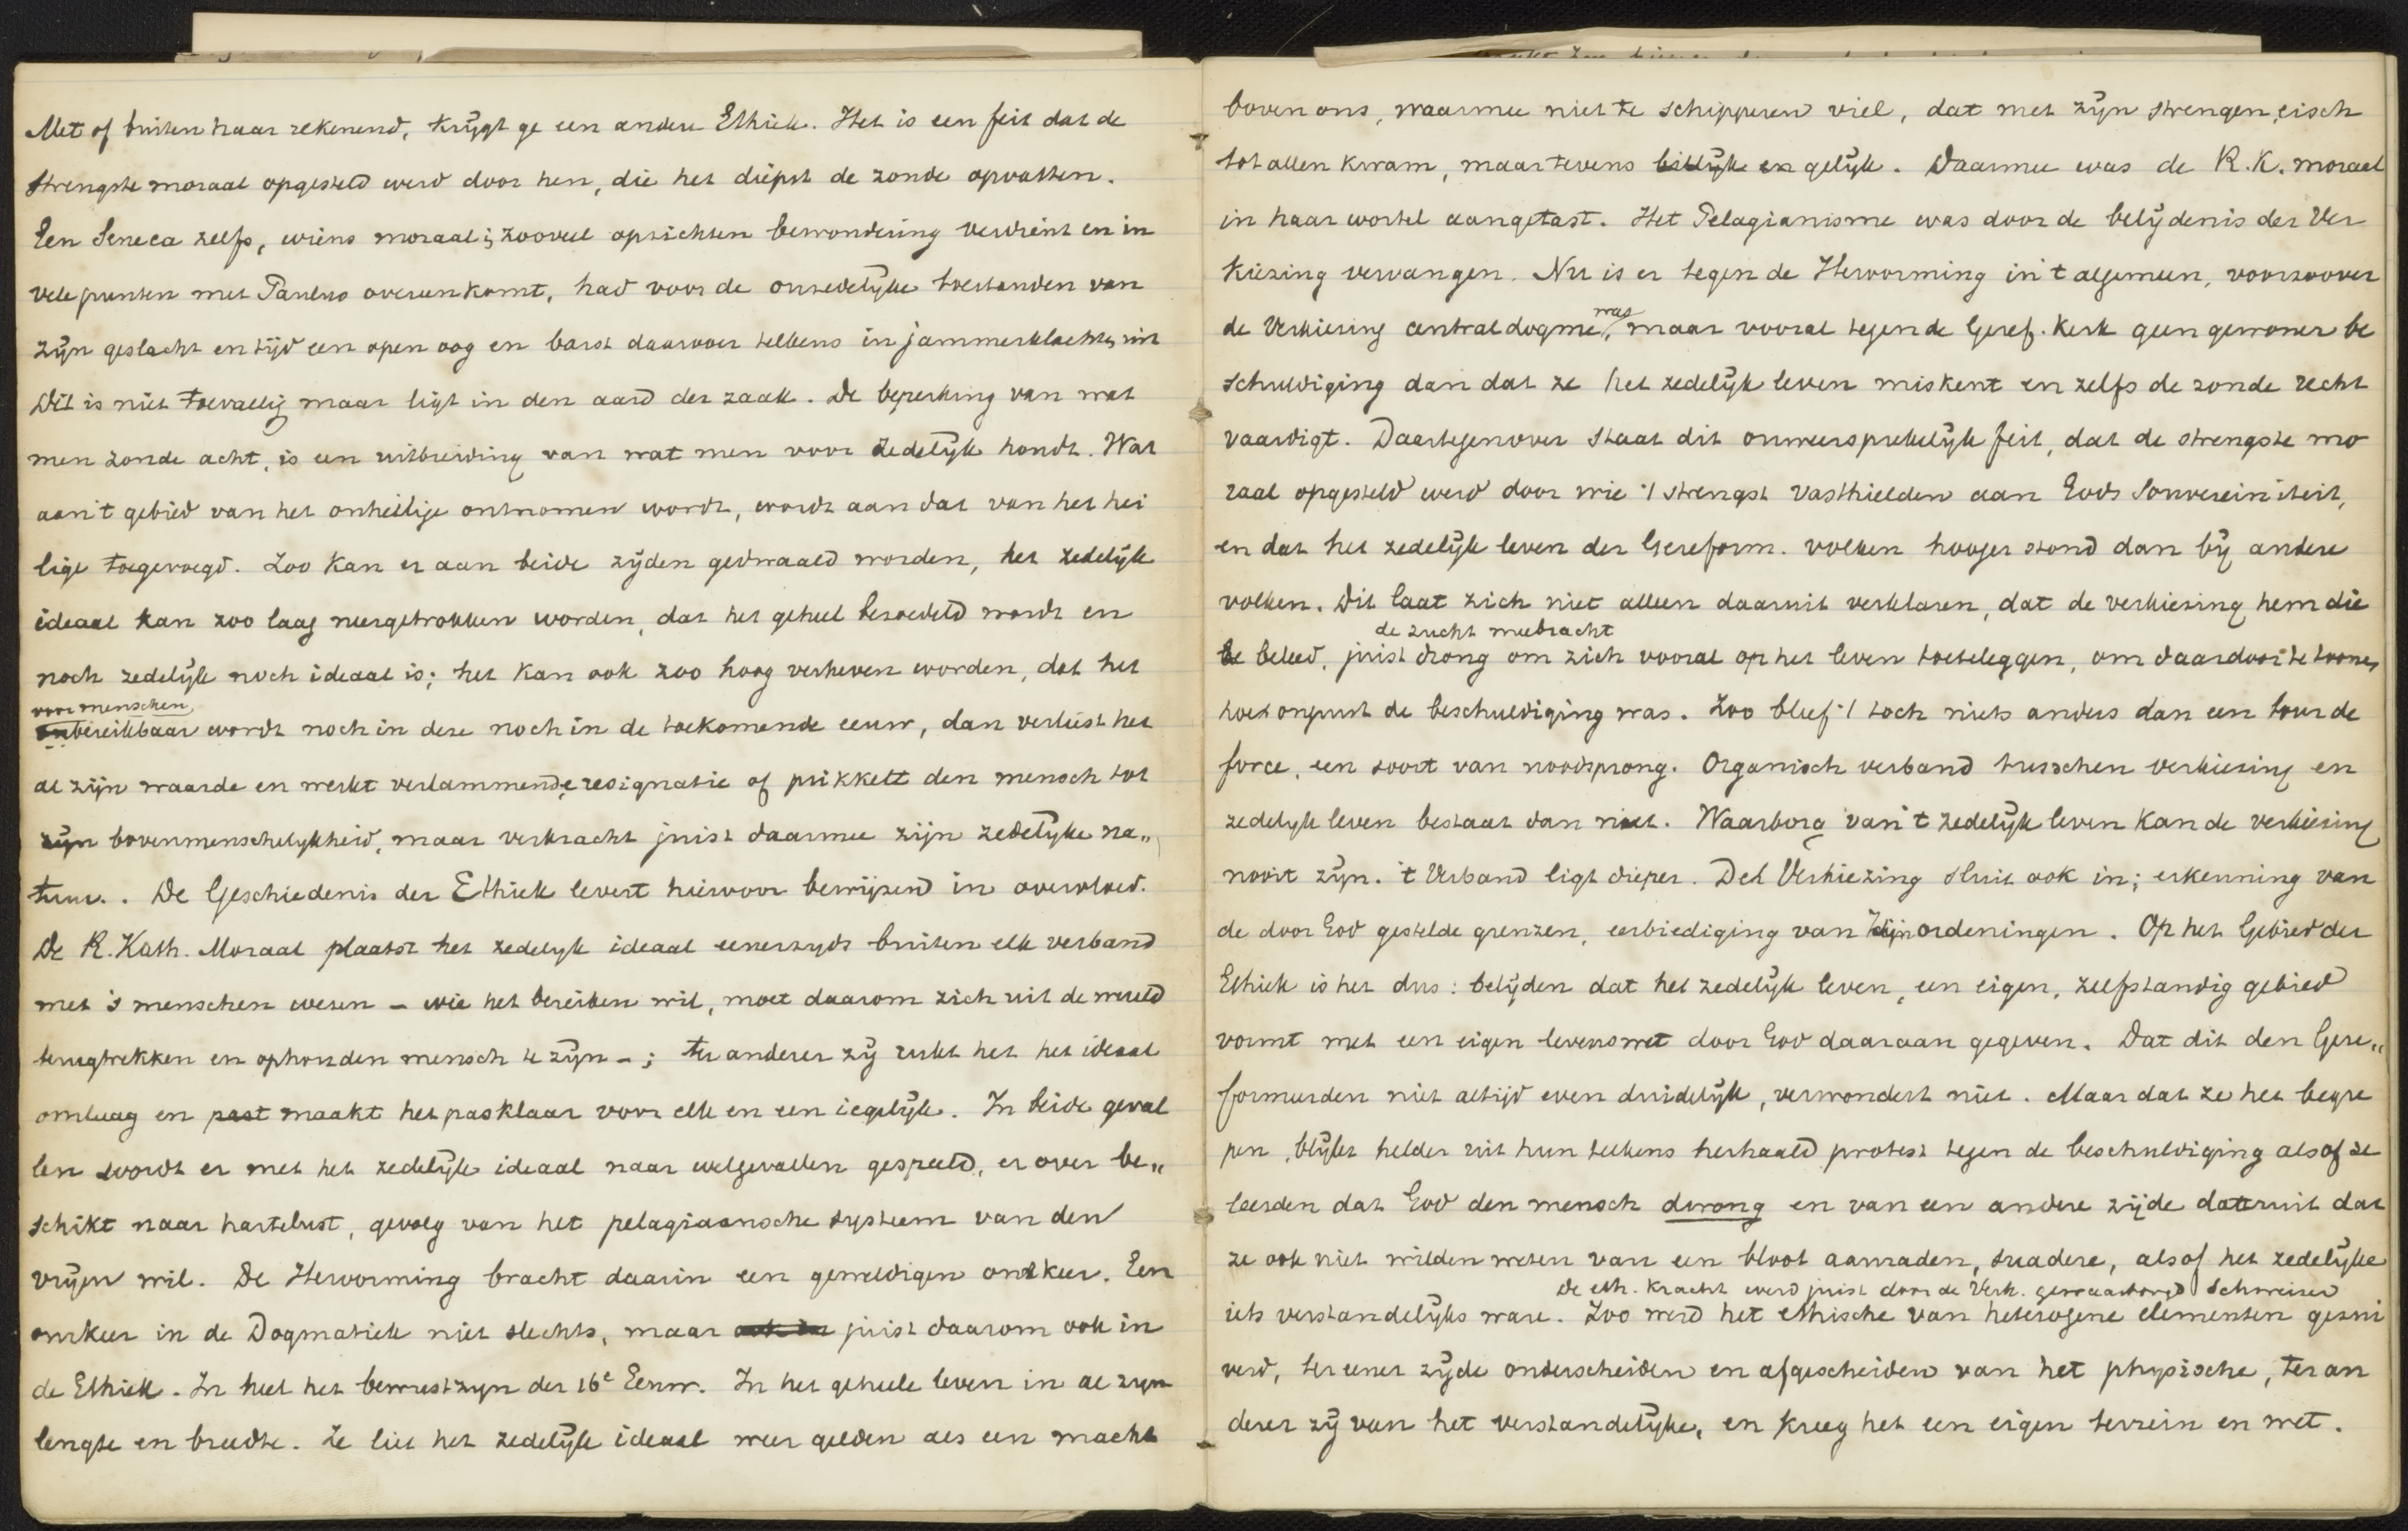 Met of buiten haar rekenend, krijgt ge een andere Ethiek. Het is een feit dat de
strengste moraal opgesteld werd door hen, die het diepst de zonde opvatten.
Een Seneca zelfs, wiens moraal in zooveel opzichten bewondering verdient en in
vele punten met Paulus overeenkomt, had voor de onzedelijke toestanden van
zijn geslacht en tijd een open oog en barst daarover telkens in jammerklachten uit
Dit is niet toevallig maar ligt in den aard der zaak. De beperking van wat
men zonde acht, is een uitbreiding van wat men voor zedelijk houdt. Wat
aan 't gebied van het onheilige ontnomen wordt, wordt aan dat van het hei
lige toegevoegd. Zoo kan er aan beide zijden gedwaald worden, het zedelijk
ideaal kan zoo laag neergetrokken worden, dat het geheel bezoedeld wordt en
noch zedelijk noch ideaal is; het kan ook zoo hoog verheven worden, dat het
voor menschen
onbereikbaar wordt noch in deze noch in de toekomende eeuw, dan verliest het
al zijn waarde en werkt verlammende resignatie of prikkelt den mensch tot
zijn bovenmenschelijkheid, maar verkracht juist daarmee zijn zedelijke na„
tuur. . De Geschiedenis der Ethiek levert hiervoor bewijzen in overvloed.
De R. Kath. Moraal plaatst het zedelijk ideaal eenerzijds buiten elk verband
met 's menschen wezen – wie het bereiken wil, moet daarom zich uit de wereld
terugtrekken en ophouden mensch te zijn –; ter anderer zij rukt het het ideaal
omlaag en past maakt het pasklaar voor elk en een iegelijk. In beide geval
len wordt er met het zedelijk ideaal naar welgevallen gespeeld, er over be„
schikt naar hartelust, gevolg van het pelagiaansche systeem van den
vrijen wil. De Hervorming bracht daarin een geweldigen omkeer. Een
omkeer in de Dogmatiek niet slechts, maar ook in juist daarom ook in
de Ethiek. In heel het bewustzijn der 16e Eeuw. In het geheele leven in al zijn
lengte en breedte. Ze liet het zedelijk ideaal weer gelden als een macht
boven ons, waarmee niet te schipperen viel, dat met zijn strengen eisch
tot allen kwam, maar tevens billijk en gelijk. Daarmee was de R.K. moraal
in haar wortel aangetast. Het Pelagianisme was door de belijdenis der Ver
kiezing vervangen. Nu is er tegen de Hervorming in 't algemeen, voorzoover
was
de Verkiezing centraaldogme, maar vooral tegen de Geref. Kerk geen gewoner be
schuldiging dan dat ze het zedelijk leven miskent en zelfs de zonde recht
vaardigt. Daartegenover staat dit onweersprekelijk feit, dat de strengste mo
raal opgesteld werd door wie 't strengst vasthielden aan Gods Souvereiniteit,
en dat het zedelijk leven der Gereform. volken hooger stond dan bij andere
volken. Dit laat zich niet alleen daaruit verklaren, dat de verkiezing hem die
de zucht meebracht
be beleed, juist drong om zich vooral op het leven toeteleggen, om daardoor te toonen
hoe onjuist de beschuldiging was. Zoo bleef 't toch niets anders dan een tour de
force, een soort van noodsprong. Organisch verband tusschen verkiezing en
zedelijk leven bestaat dan niet. Waarborg van 't zedelijk leven kan de verkiezing
nooit zijn. 't Verband ligt dieper. Del Verkiezing sluit ook in; erkenning van
de door God gestelde grenzen, eerbiediging van Zijn ordeningen. Op het Gebied der
Ethiek is het dus: belijden dat het zedelijk leven, een eigen, zelfstandig gebied
vormt met een eigen levenswet door God daaraan gegeven. Dat dit den Gere„
formeerden niet altijd even duidelijk, verwondert niet. Maar dat ze het begre
pen, blijkt helder uit hun telkens herhaald protest tegen de beschuldiging alsof ze
leerden dat God den mensch dwong en van een andere zijde daaruit dat
ze ook niet wilden weten van een bloot aanraden, suadere, alsof het zedelijke
de eth. kracht werd juist door de Verk. gewaarborgd Schweizer
iets verstandelijks ware. Zoo werd het ethische van heterogene elementen gezui
verd, ter eener zijde onderscheiden en afgescheiden van het physische, ter an
derer zij van het verstandelijke, en kreeg het een eigen terrein en wet.